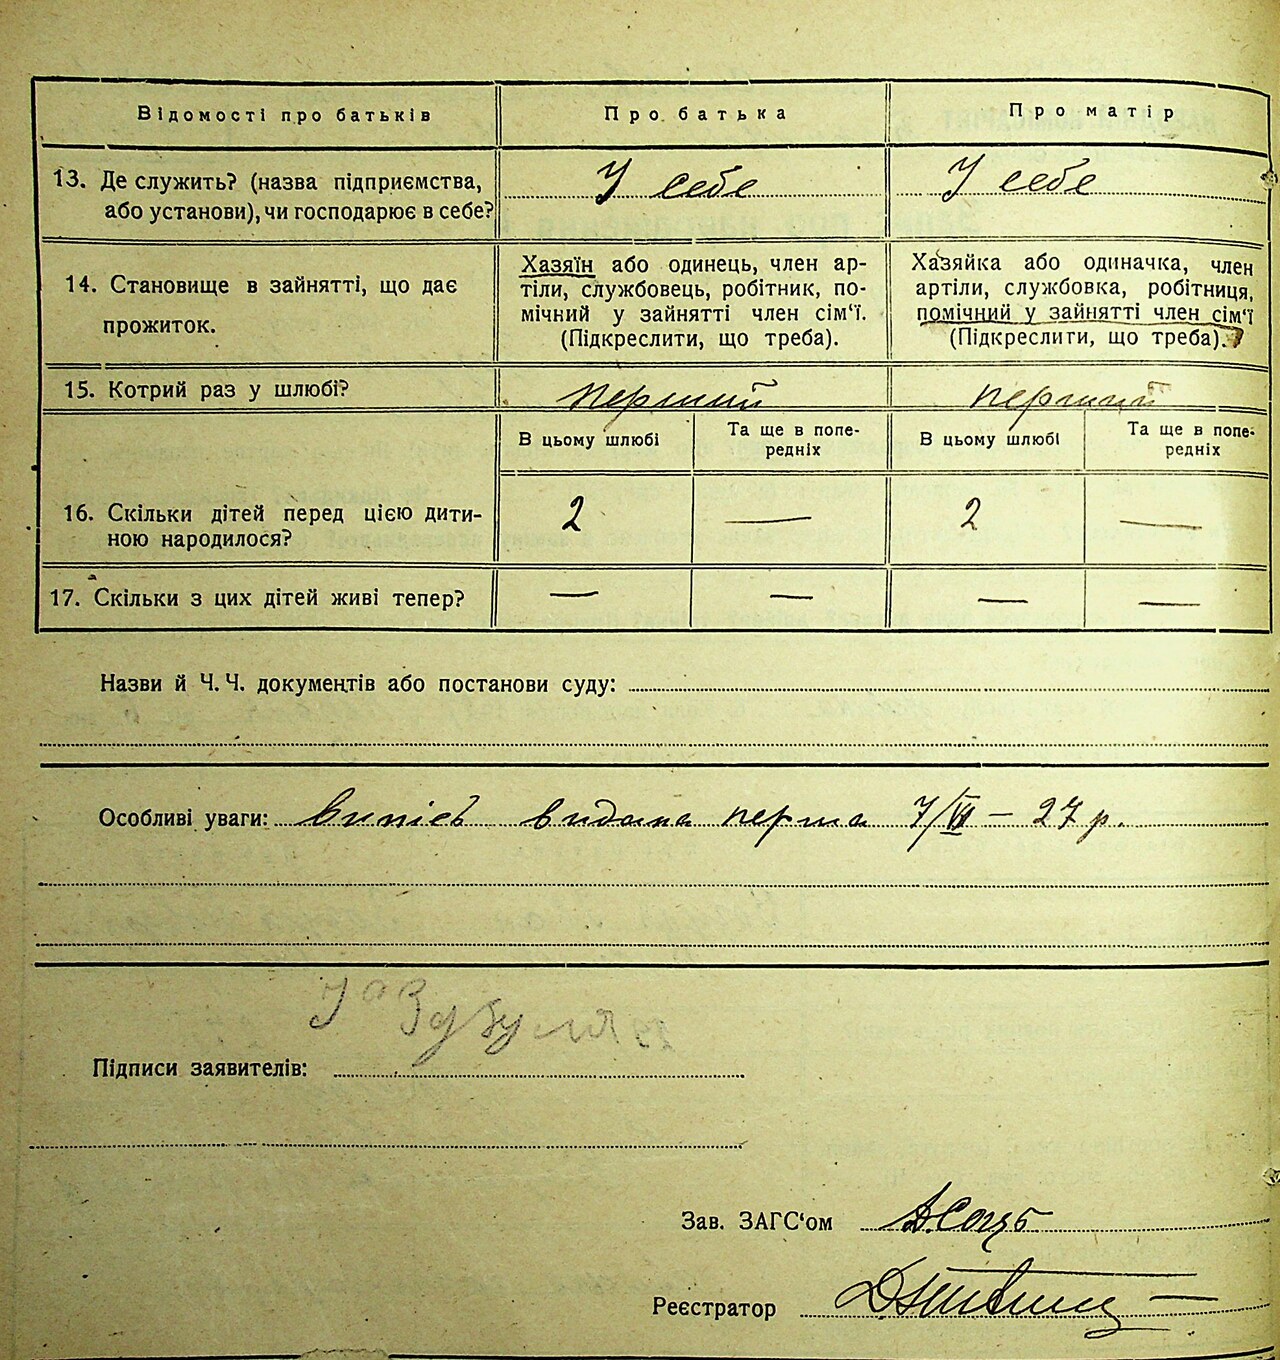 Відомості про батьків
Про батька
Про матір
13. Де служить? (назва підприємства,
або установи), чи господарює в себе?
У себе
У себе
14. Становище в зайнятті, що дає
прожиток.
Хазяїн або одинець, член ар-
тіли, службовець, робітник, по-
мічний у зайнятті член сім‘ї.
(Підкреслити, що треба).
Хазяйка або одиначка, член
артіли, службовка, робітниця,
помічний у зайнятті член сім‘ї
(Підкреслити, що треба).
15. Котрий раз у шлюбі?
перший
перший
В цьому шлюбі
Та ще в попе-
редніх
В цьому шлюбі
Та ще в попе-
редніх
16. Скільки дітей перед цією дити-
ною народилося?
2
—
2
—
17. Скільки з цих дітей живі тепер?
—
—
—
—
Назви й Ч. Ч. документів або постанови суду:
Особливі уваги: Випісь видана перша 7/VI – 27 р.
Підписи заявителів:
Зав. ЗАГС‘ом
Реєстратор